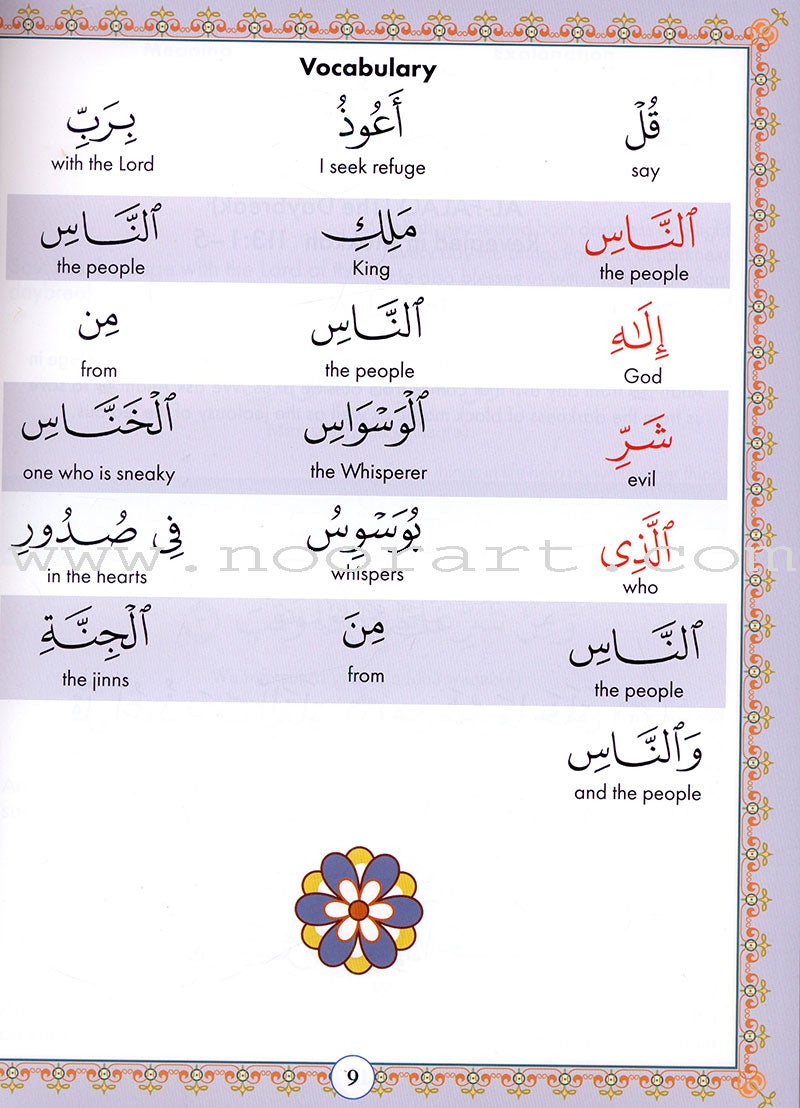 Vocabulary
قُلْ أَعُوذُ بِرَبِّ
say I seek refuge with the Lord
ٱلنَّاسِ مَلِكِ ٱلنَّاسِ
the people King the people
إِلَـٰهِ ٱلنَّاسِ مِن
God the people from
شَرِّ ٱلْوَسْوَاسِ ٱلْخَنَّاسِ
evil the Whisperer one who is sneaky
ٱلَّذِى يُوَسْوِسُ فِى صُدُورِ
who whispers in the hearts
ٱلنَّاسِ مِنَ ٱلْجِنَّةِ
the people from the jinns
وَٱلنَّاسِ
and the people
www.noorart.com
9